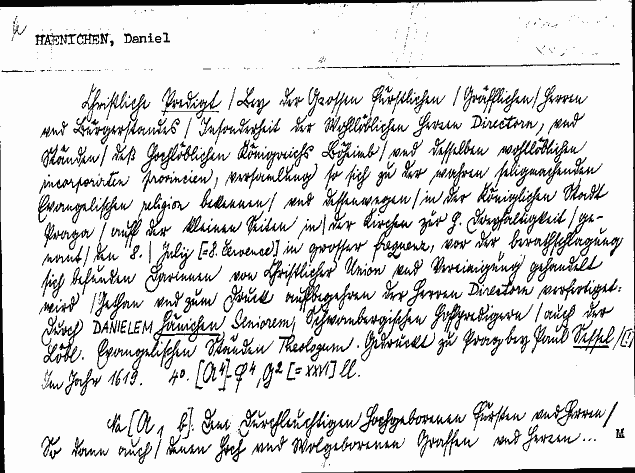 HAENICHEN, Daniel
Christliche Predigt / Bey der Grossen Fürstlichen / Gräfflichen / Herren
und Bürgerstandes / Insonderheit der Wohllöblichen Herren Directorn, und
Ständen / deß Hochlöblichen Königreichs Böheimb / und desselben wohllöblichen
incorporirten Provincien, versamlung / so sich zu der wahren seligmachenden
Evangelischen religion bekennen / und deßwegen / in der Königlichen Stadt
Praga / auff der kleinen Seiten in / der Kirchen zur H. Dreyfaltigkeit / ge-
nant / den 8. / Julij [=8. Července] in grosser frequenz, vor der berathschlagung
sich befunden Darinnen von Christlicher Union und Vereinigung gehandelt
wird / Jetzan und zum Druck auffbegehren der Herren Directorn verfertiget:
Durch DANIELEM Hänichen Seniorem, Schwanbergischen Hoffpredigern / auch der
Löbl. Evangelischen Ständen Theologum. Gedruckt zu Prag bey Paul Sessel / [!]
Im Jahr 1619. 4o. [A4]-F4, G2 [=XXVI] ll.
Na [A, b]: Dem Durchleuchtigen Hochgeborenen Fürsten und Herren /
So dann auch / denen Hoch und Wolgeborenen Graffen und Herren ... M